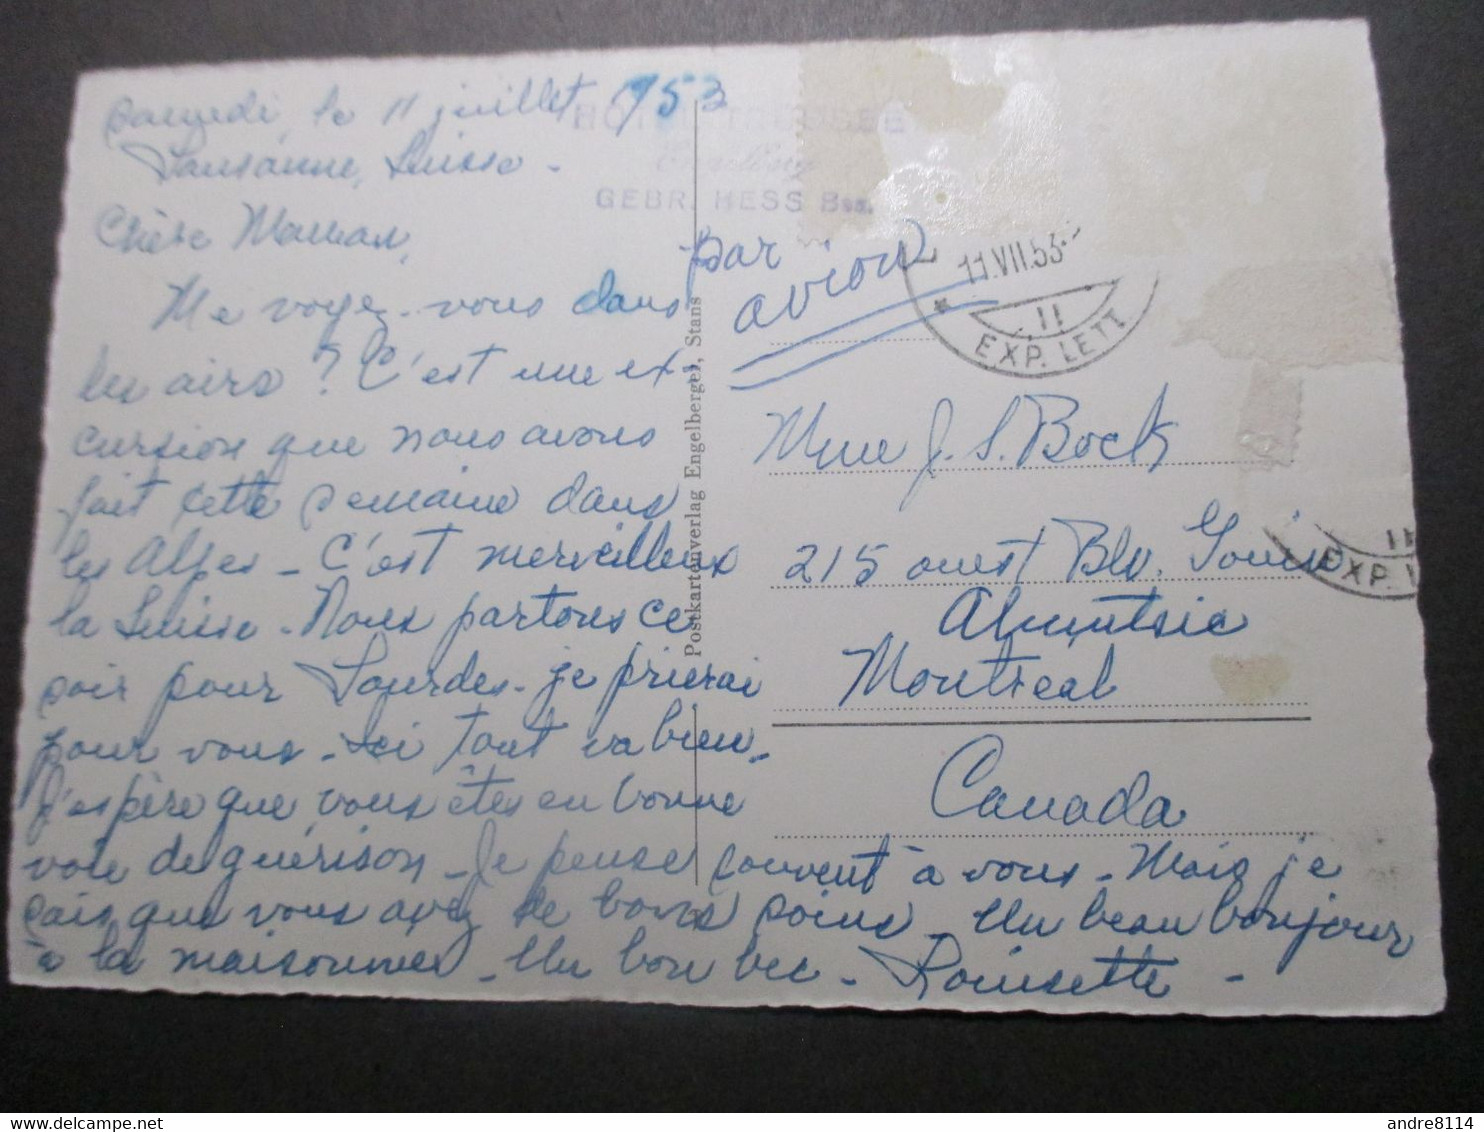 Samedi, le 11 juillet 1953
Lausanne, Suisse -
Chère Maman,
Me voyez-vous dans
les airs ? C'est une ex-
cursion que nous avons
fait cette semaine dans
les Alpes - C'est merveilleux
la Suisse - Nous partons ce
soir pour Lourdes - je prierai
pour vous - Ici tout va bien.
J'espère que vous êtes en bonne
voie de guérison - Je pense souvent à vous - Mais je
sais que vous avez de bons soins - Un beau bonjour
à la maisonnée - Un bon bec - Louisette -
GEBR. HESS Bes.
par
avion
11.VII.53
11
EXP. LETT
Postkartenverlag Engelberger, Stans
Mme J. S. Bock
215 ouest Blv. Gouin
Ahuntsic
Montreal
Canada
11
EXP. L
andre8114